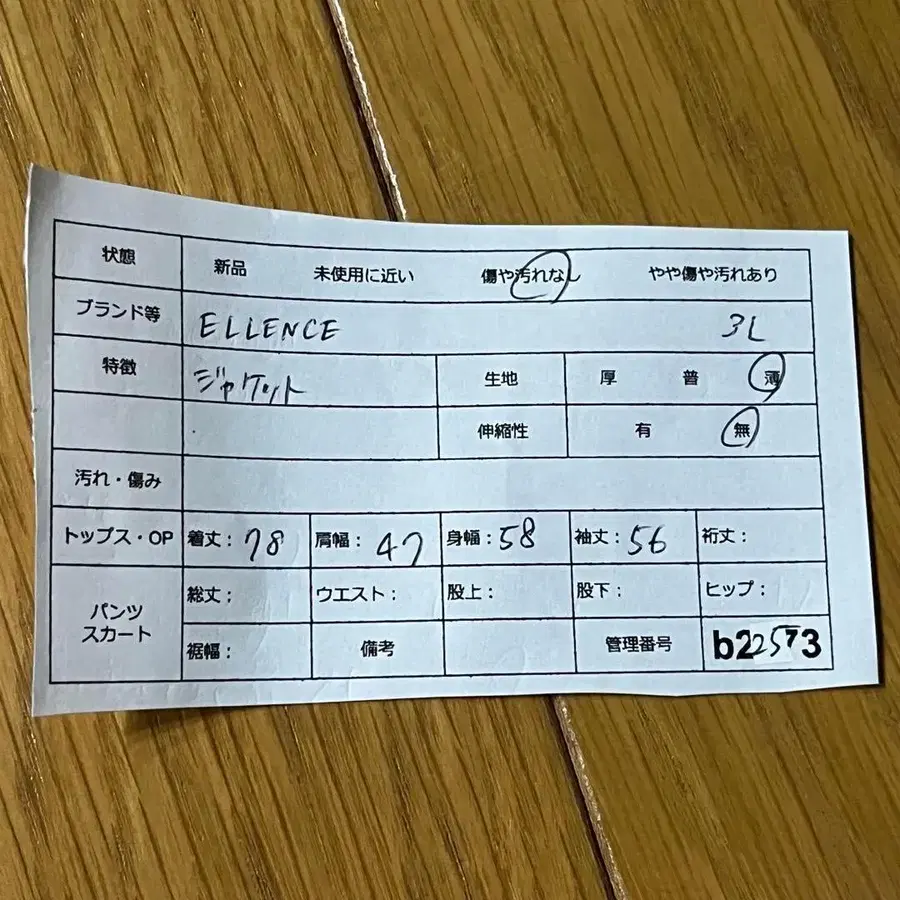 状態 新品 未使用に近い 傷や汚れなし やや傷や汚れあり
ブランド等 ELLENCE 3L
特徴 ジャケット 生地 厚 普 薄
伸縮性 有 無
汚れ・傷み
トップス・OP 着丈: 78 肩幅: 47 身幅: 58 袖丈: 56 裄丈:
パンツ スカート 総丈; ウエスト: 股上: 股下: ヒップ:
裾幅: 備考 管理番号 b22573